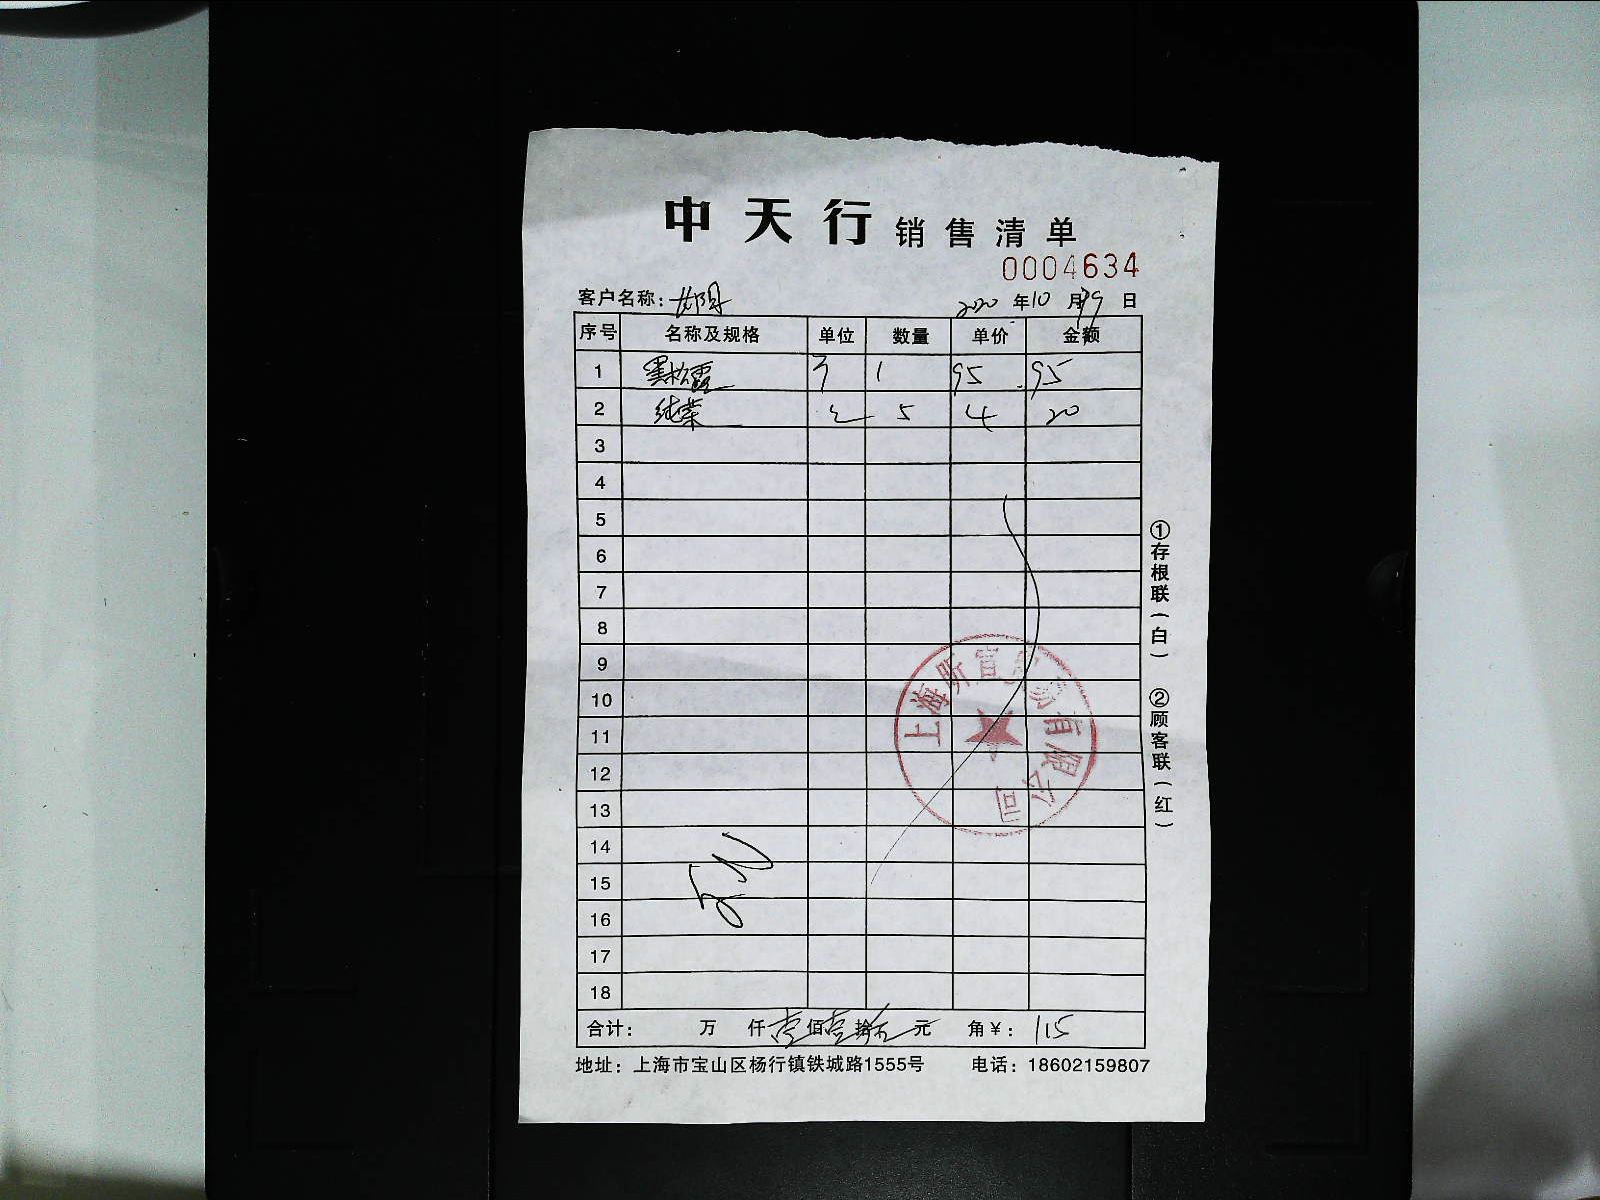 中天行 销售清单
0004634
客户名称： 2020 年 10 月 29 日
序号 名称及规格 单位 数量 单价 金额
1 黑松露 1 95 95
2 纯菜 5 4 20
3
4
5
6
7
8
9
10
11
12
13
14
15
16
17
18
合计： 万 仟 壹 佰 壹 拾 五 元 角 ￥： 115
地址：上海市宝山区杨行镇铁城路1555号 电话：18602159807
①存根联（白） ②顾客联（红）
上海昕宜贸易有限公司